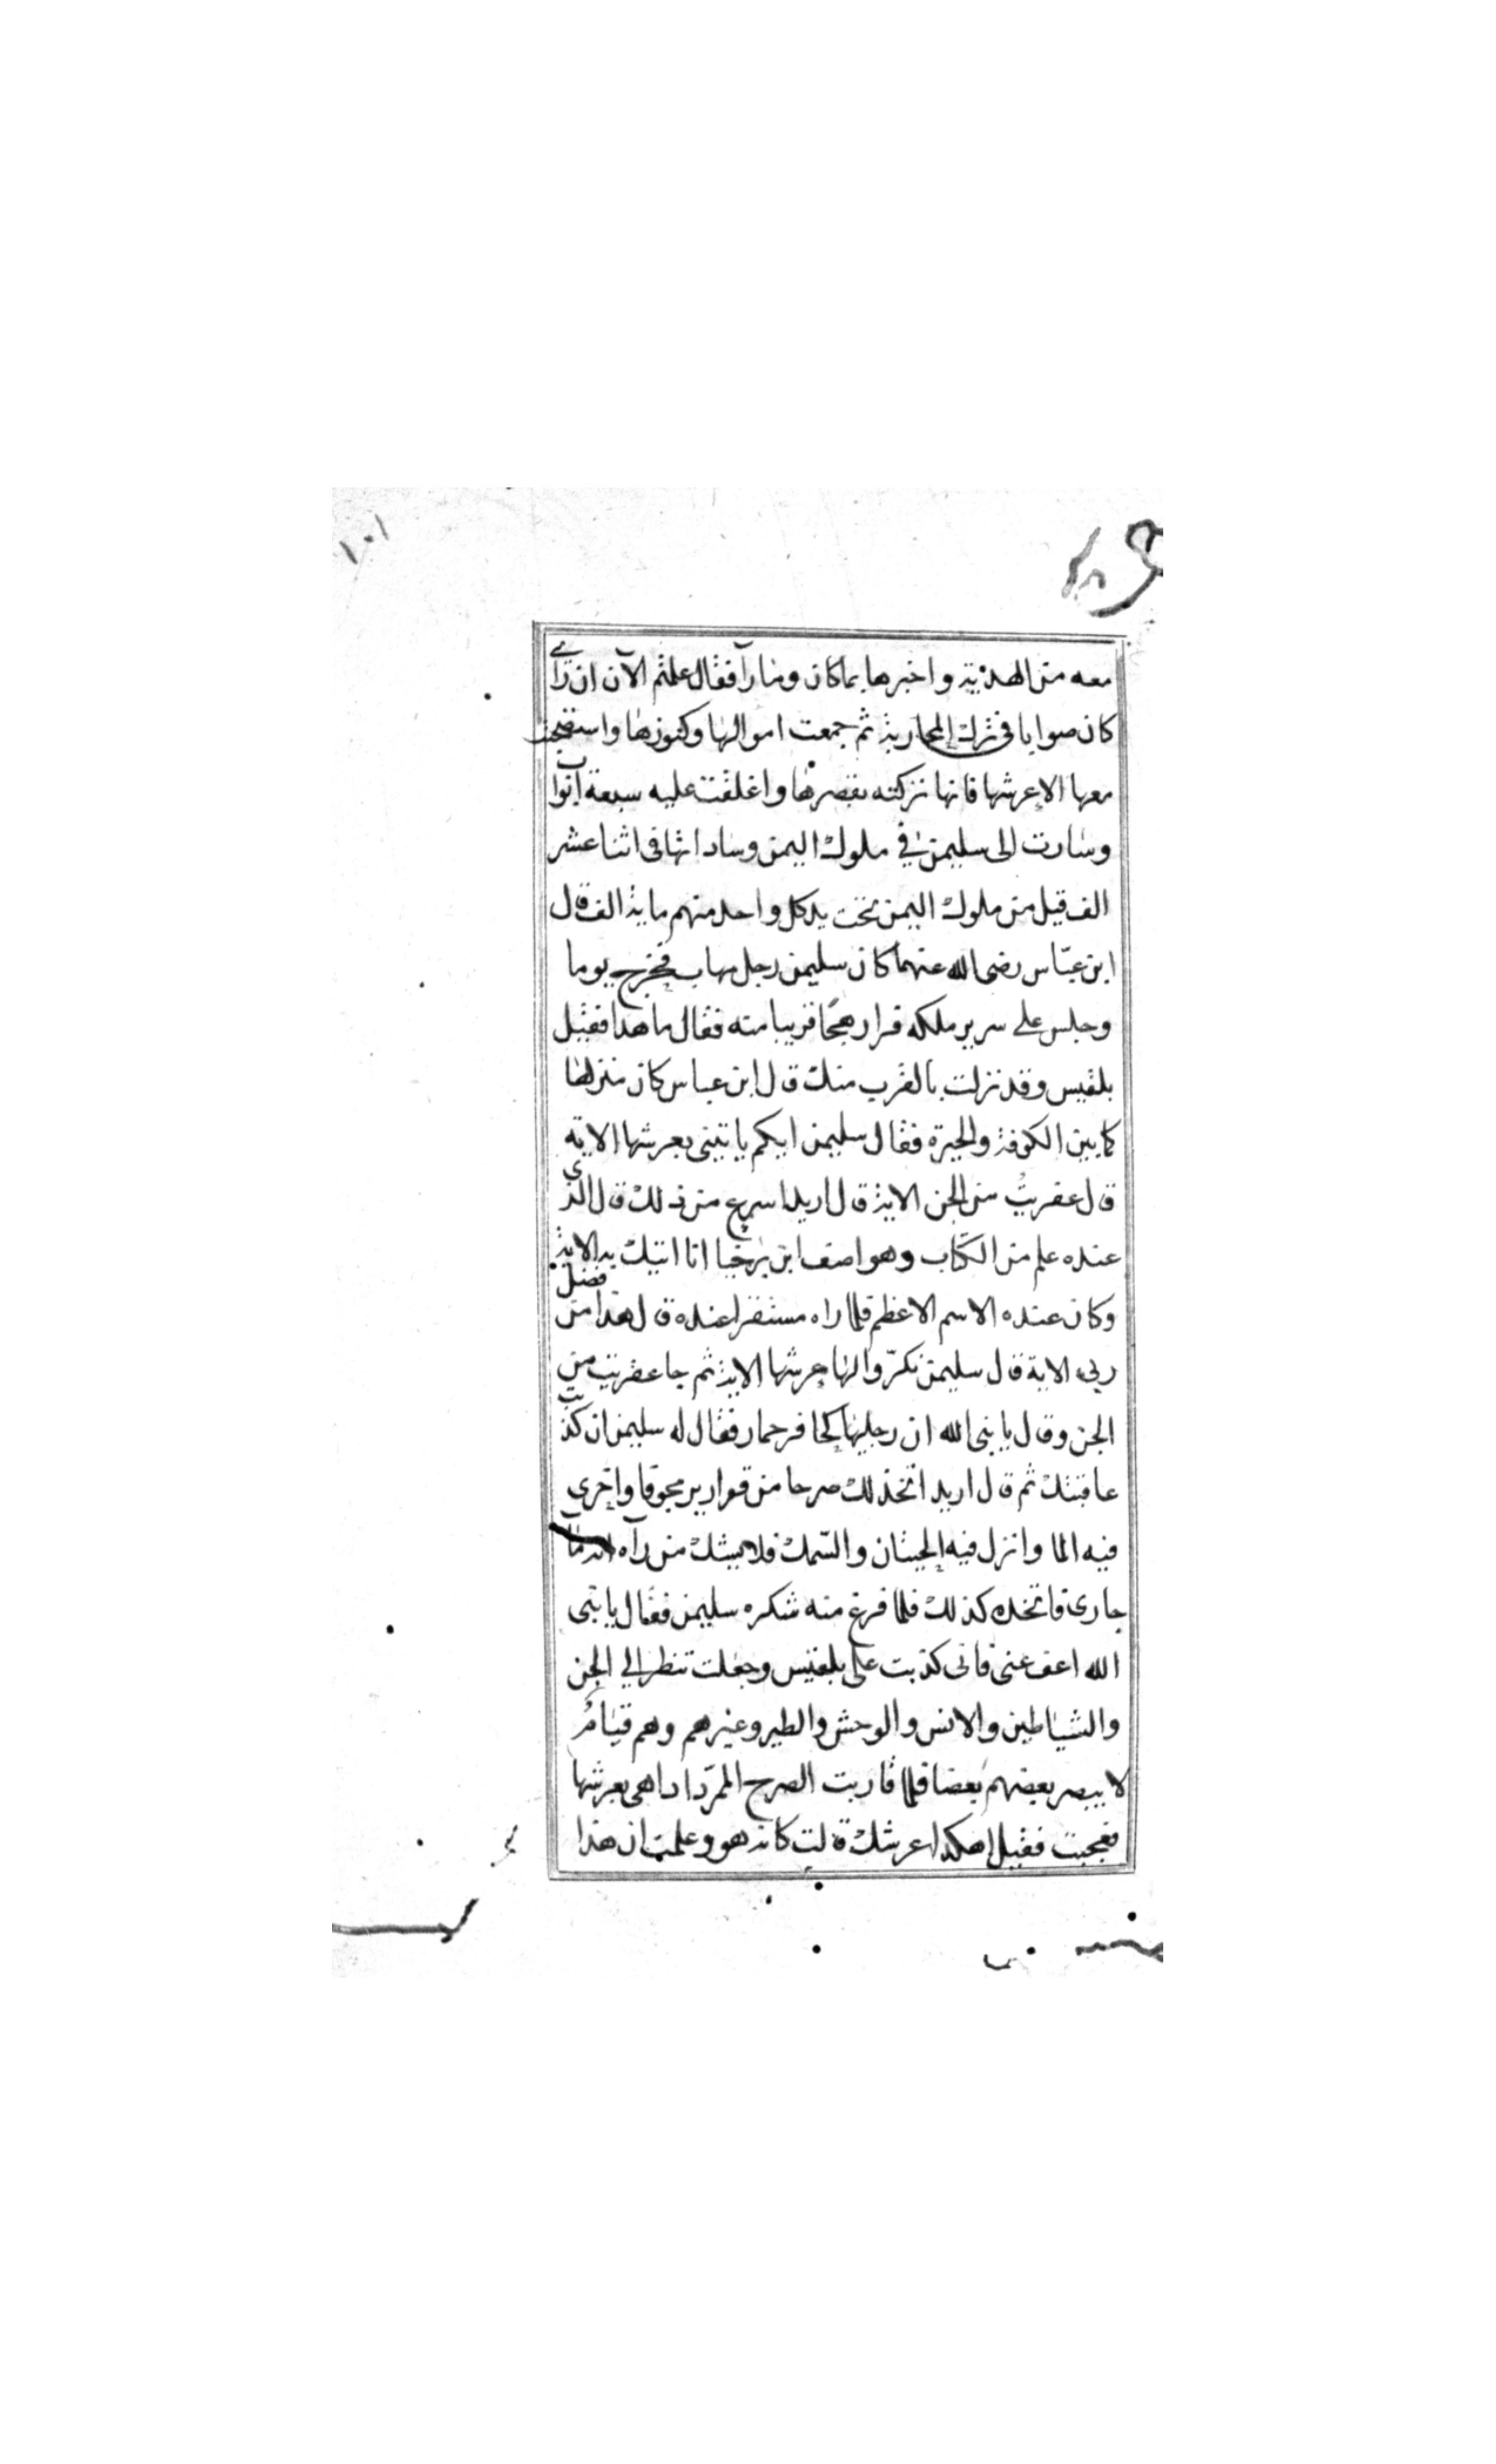 ١٠١
معه من الهدية واخبرها بما كان وما رآ فقال علمتم الآن ان رآى
كان صوابا فى ترك المحاربة ثم جمعت اموالها وكنوزها واستصحبت
معها الا عرشها فانها تركته بقصرها واغلقت عليه سبعة ابواب
وسارت الى سليمن فى ملوك اليمن وساداتها فى اثنا عشر
الف قيل من ملوك اليمن تحت يد كل واحد منهم ماية الف قال
ابن عبّاس رضى الله عنهما كان سليمن رجل مهاب فخرج يوما
وجلس على سرير ملكه فرا رهجًا قريبا منه فقال ما هذا فقيل
بلقيس وقد نزلت بالقرب منك قال ابن عباس كان منزلها
كما بين الكوفة والحيرة فقال سليمن ايكم ياتينى بعرشها الاية
قال عفريتٌ من الجن الاية قال اريد اسرع من ذلك قال الذى
عنده علم من الكتاب وهو اصف ابن برخيا انا اتيك به الاية
وكان عنده الاسم الاعظم فلما راه مستقرا عنده قال هذا من فضل
ربى الاية قال سليمن نكرّوا لها عرشها الاية ثم جا عفريت من
الجن وقال يا نبى الله ان رجليها كحافر حمار فقال له سليمن ان كذبت
عاقبتك ثم قال اريد اتخذ لك صرحا من قوارير مجوفا واجرى
فيه الما وانزل فيه الحيتان والسّمك فلا يشك من رآه انه مآ
جارى فاتخذه كذلك فلما فرغ منه شكره سليمن فقال يا نبى
الله اعف عنى فانى كذبت على بلقيس وجعلت تنظر الى الجن
والشياطين والانس والوحش والطير وغيرهم وهم قيامٌ
لا يبصر بعضهم بعضا فلما قاربت الصرح الممرّد اذا هى بعرشها
فعجبت فقيل اهكذا عرشك قالت كانه هو وعلمت ان هذا